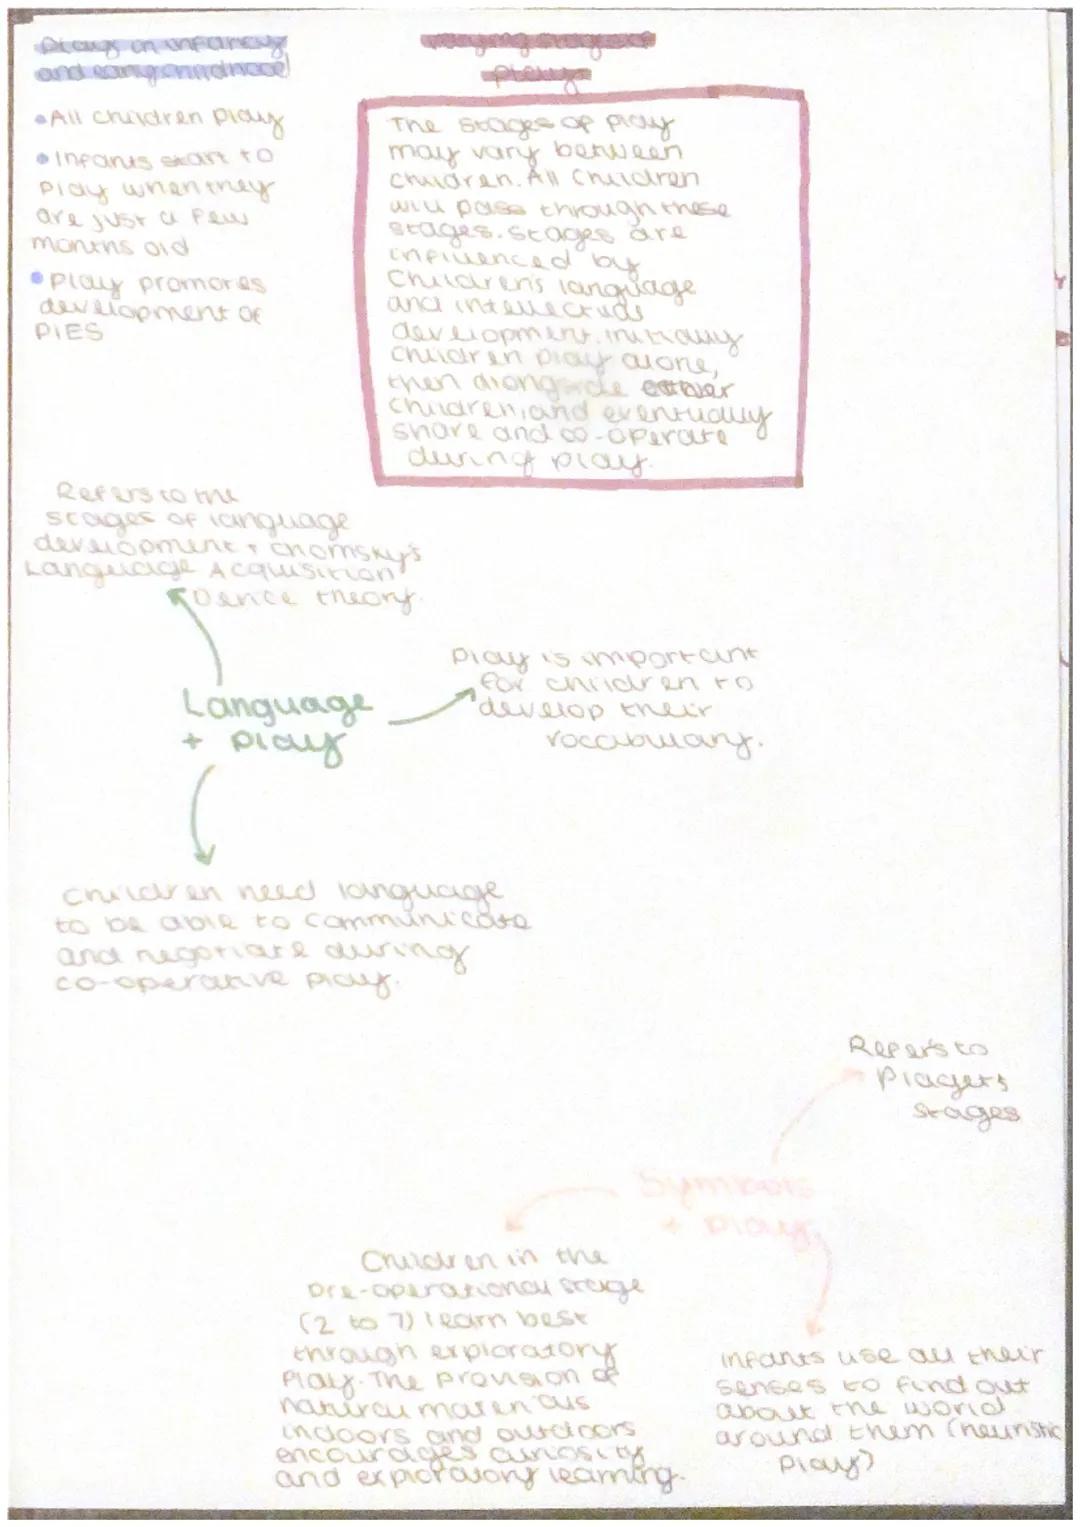 Plays in infancy
and early childhood
• All children play
• Infants start to
play when they
are just a few
months old
• Play promotes
development of
PIES
Varying stages of
play
The stages of play
may vary between
children. All children
will pass through these
stages. Stages are
influenced by
children's language
and intellectual
development. Initially
children play alone,
then alongside other
children, and eventually
share and co-operate
during play.
Refers to the
stages of language
development + Chomsky's
Language Acquisition
Device theory.
Language
+ play
Play is important
for children to
develop their
vocabulary.
Children need language
to be able to communicate
and negotiate during
co-operative play.
Refers to
Piaget's
stages
Symbols
+ play
Children in the
pre-operational stage
(2 to 7) learn best
through exploratory
play. The provision of
natural materials
indoors and outdoors
encourages curiosity
and exploratory learning.
Infants use all their
senses to find out
about the world
around them (heuristic
play)